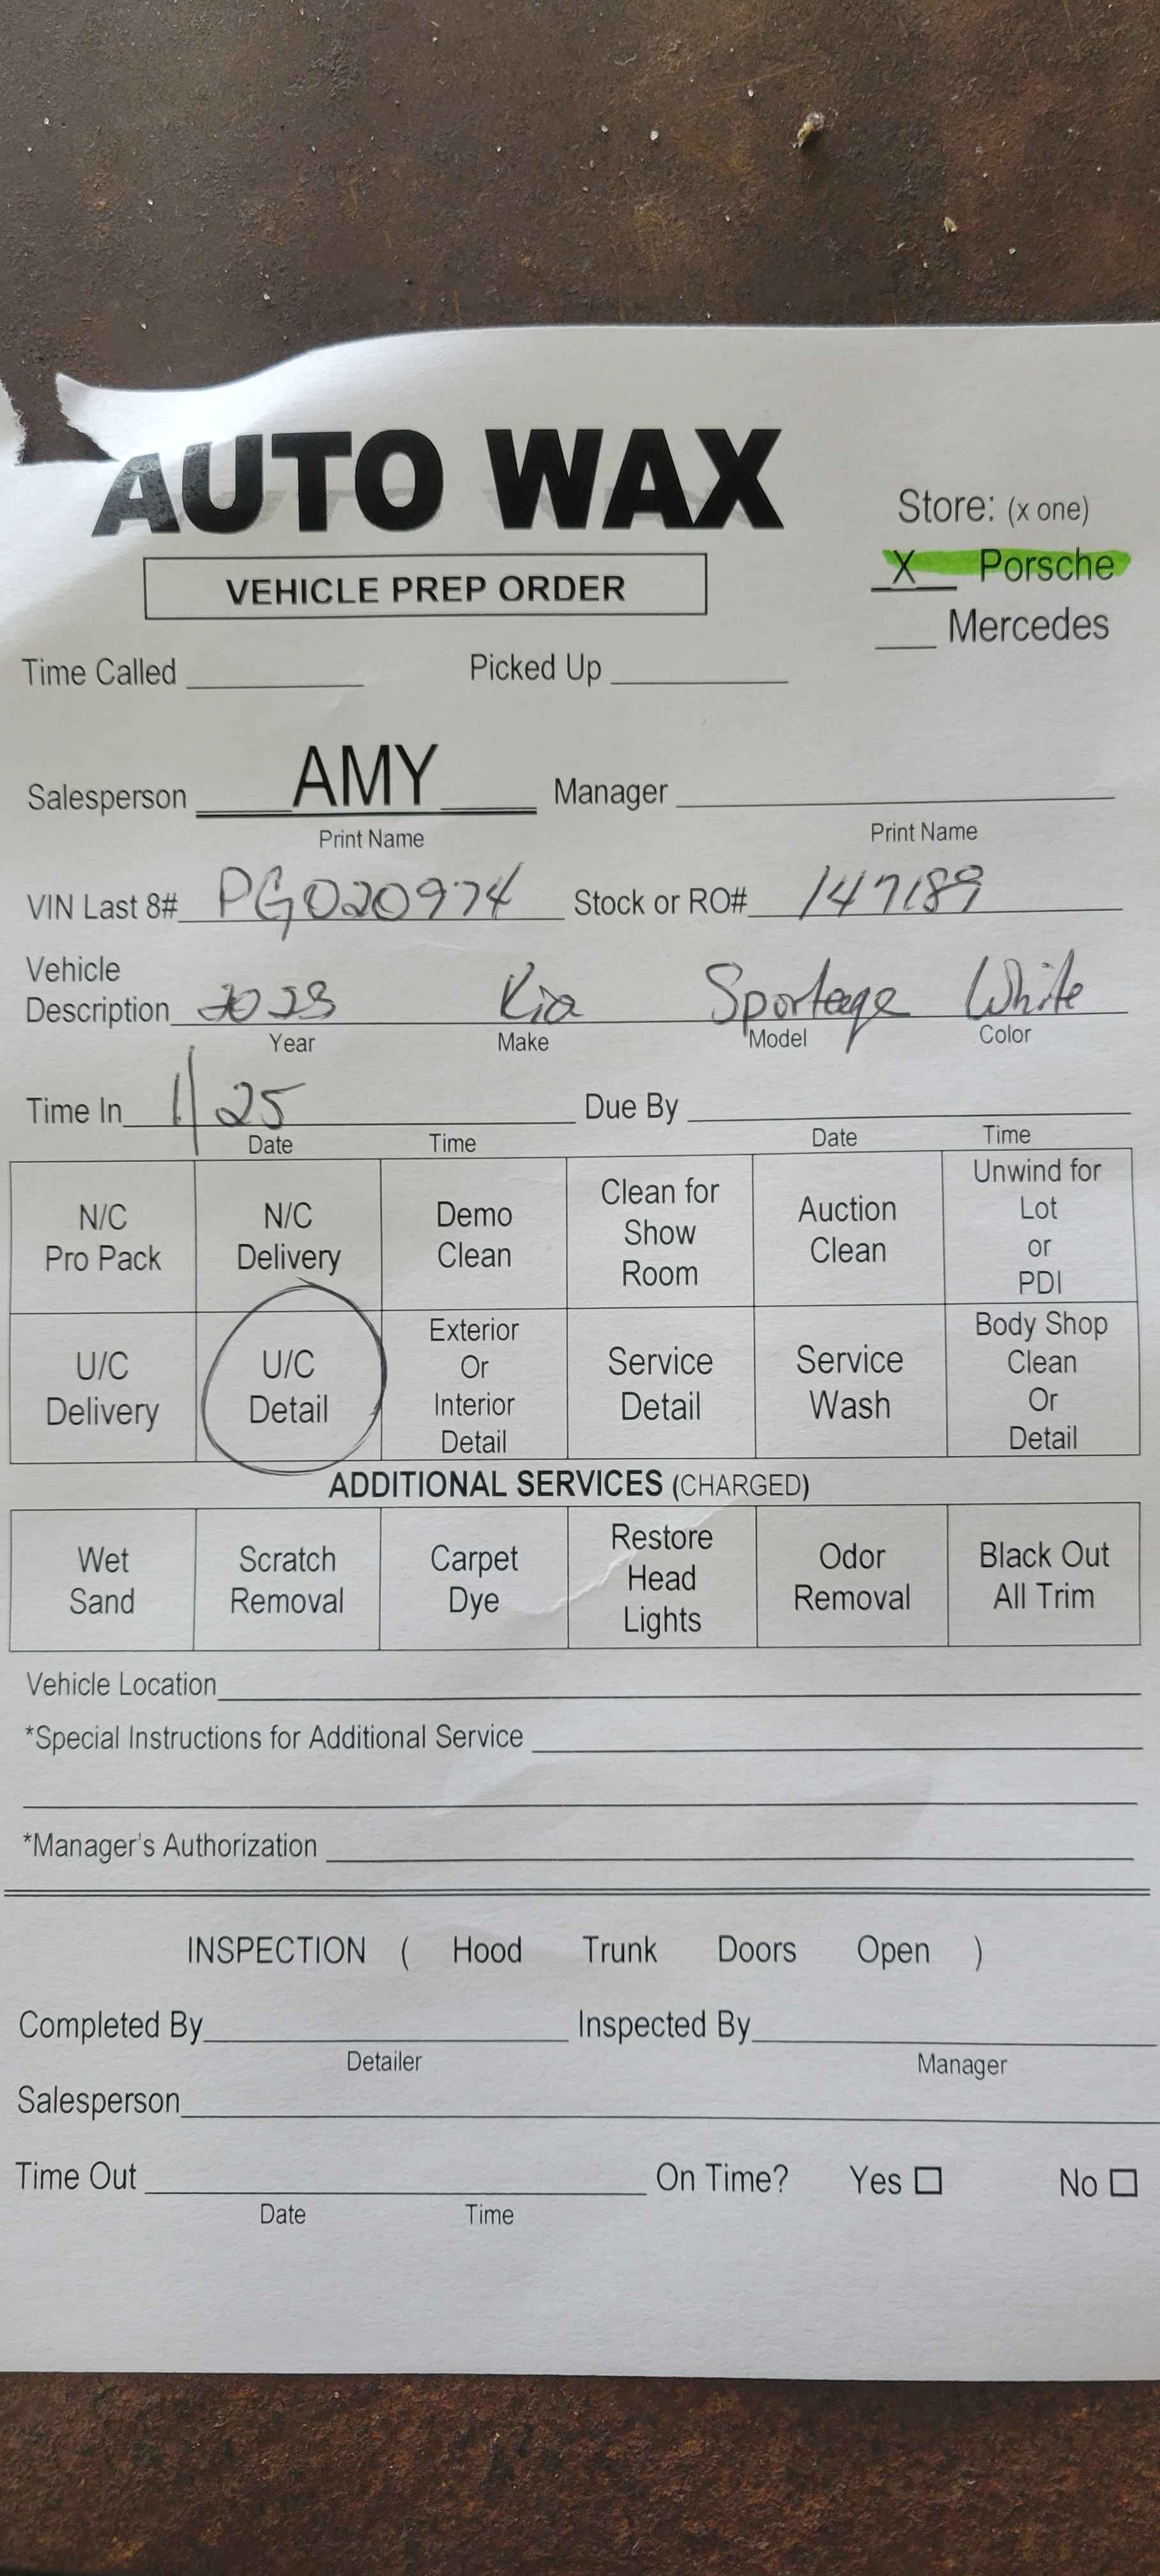 AUTO WAX
Store: (x one)
VEHICLE PREP ORDER
X Porsche
Mercedes
Time Called Picked Up
Salesperson AMY Manager
Print Name Print Name
VIN Last 8# PG020974 Stock or RO# 147189
Vehicle
Description 2023 Kia Sportage White
Year Make Model Color
Time In 1/25 Due By
Date Time Date Time
N/C Pro Pack
N/C Delivery
Demo Clean
Clean for Show Room
Auction Clean
Unwind for Lot or PDI
U/C Delivery
U/C Detail
Exterior Or Interior Detail
Service Detail
Service Wash
Body Shop Clean Or Detail
ADDITIONAL SERVICES (CHARGED)
Wet Sand
Scratch Removal
Carpet Dye
Restore Head Lights
Odor Removal
Black Out All Trim
Vehicle Location
*Special Instructions for Additional Service
*Manager's Authorization
INSPECTION ( Hood Trunk Doors Open )
Completed By Inspected By
Detailer Manager
Salesperson
Time Out On Time? Yes ☐ No ☐
Date Time